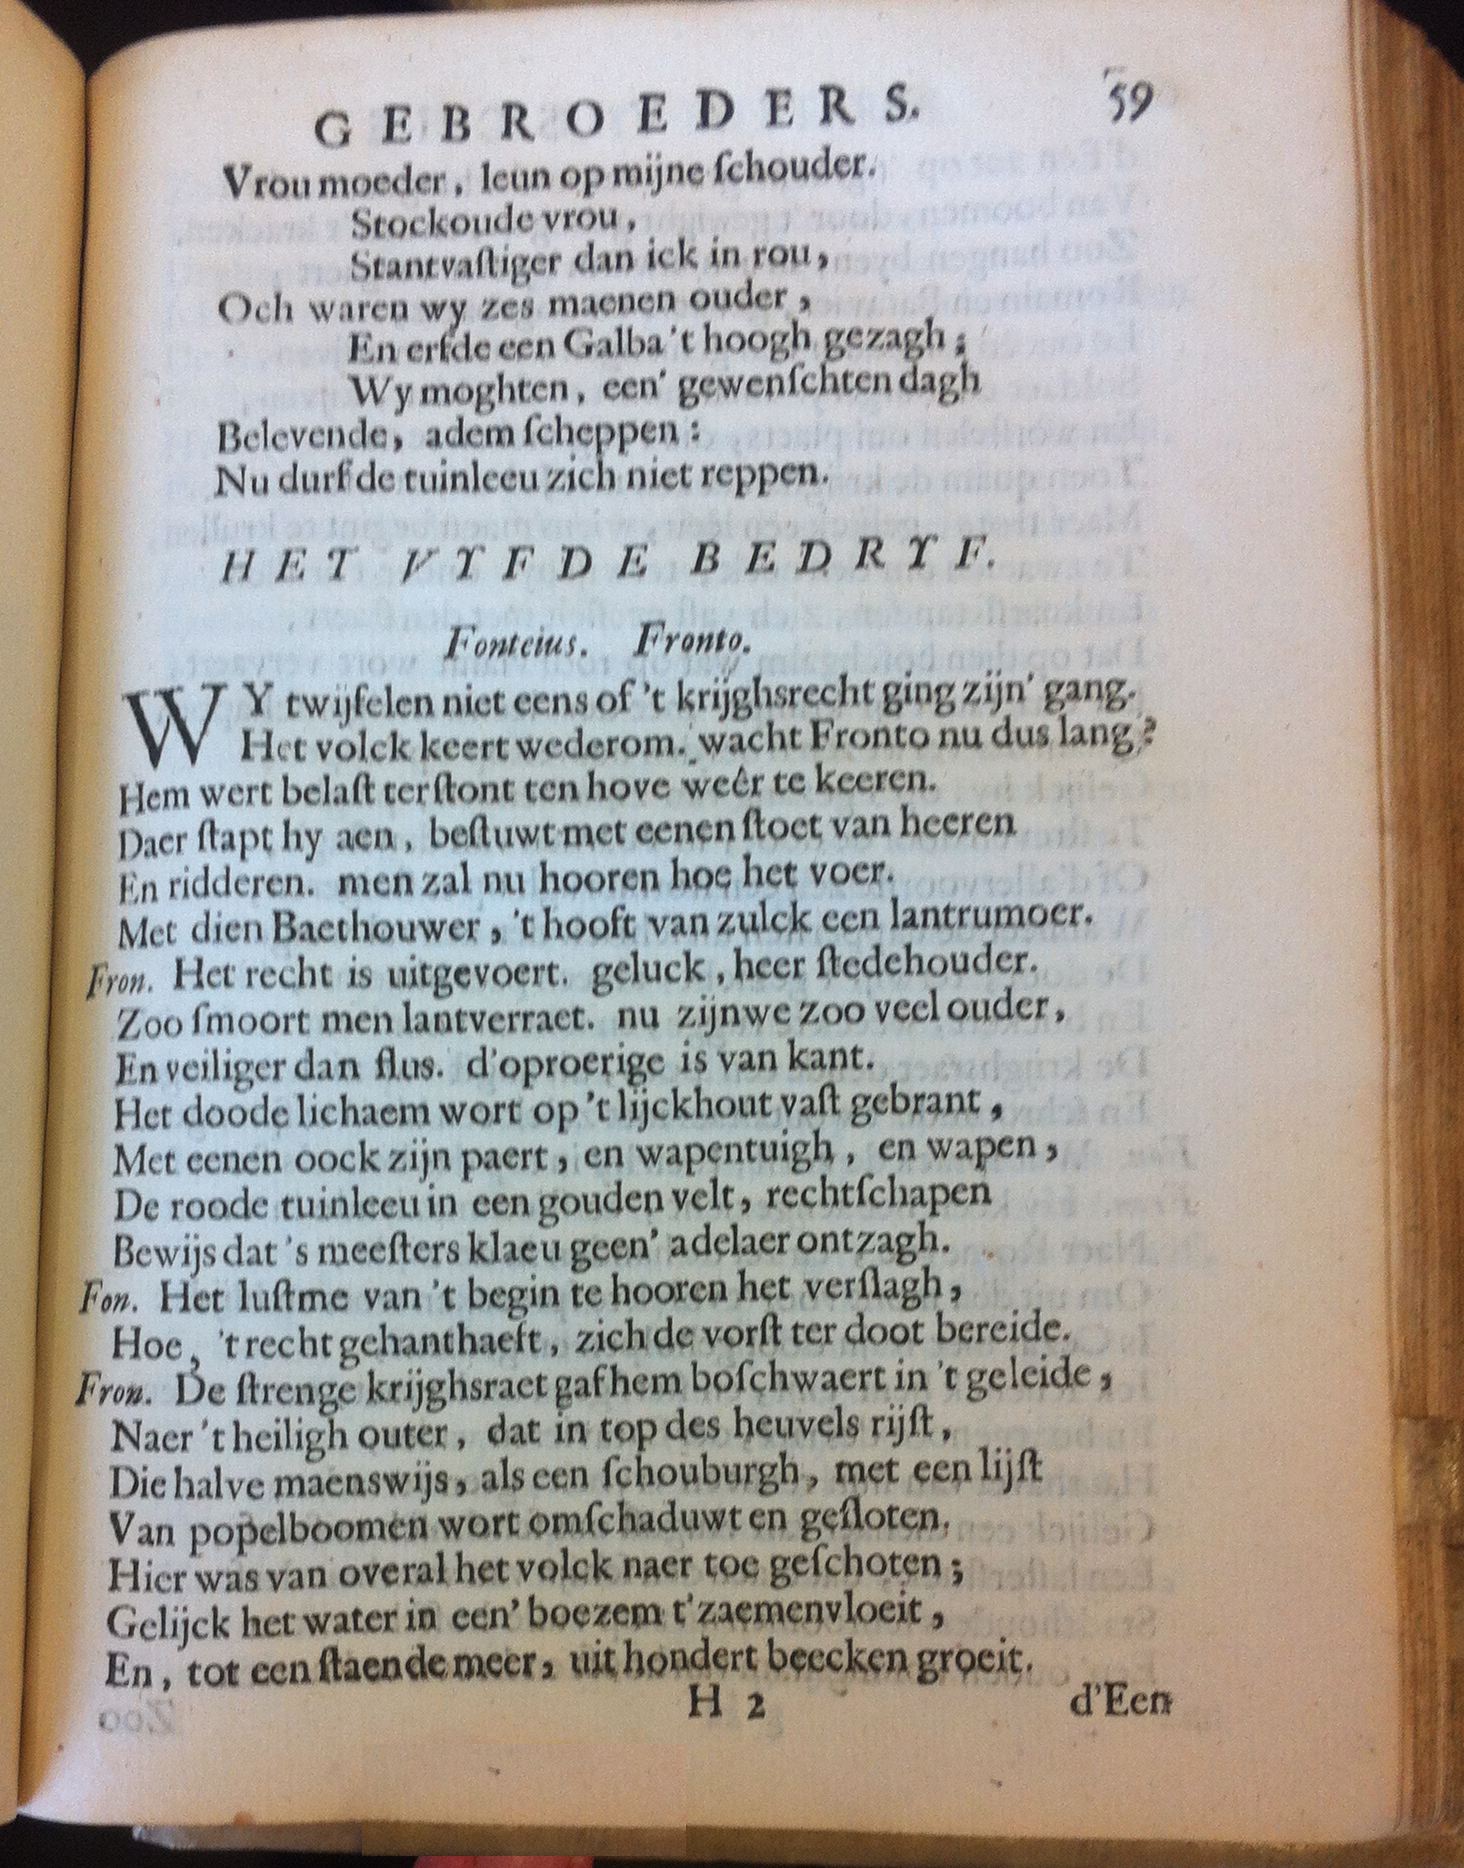 GEBROEDERS. 59
Vrou moeder, leun op mijne ſchouder.
Stockoude vrou,
Stantvaſtiger dan ick in rou,
Och waren wy zes maenen ouder,
En erfde een Galba 't hoogh gezagh;
Wy moghten, een' gewenſchten dagh
Belevende, adem ſcheppen:
Nu durf de tuinleeu zich niet reppen.
HET VYFDE BEDRYF.
Fonteius. Fronto.
WY twijfelen niet eens of 't krijghsrecht ging zijn' gang.
Het volck keert wederom. wacht Fronto nu dus lang?
Hem wert belaſt terſtont ten hove weêr te keeren.
Daer ſtapt hy aen, beſtuwt met eenen ſtoet van heeren
En ridderen. men zal nu hooren hoe het voer.
Met dien Baethouwer, 't hooft van zulck een lantrumoer.
Fron. Het recht is uitgevoert. geluck, heer ſtedehouder.
Zoo ſmoort men lantverraet. nu zijnwe zoo veel ouder,
En veiliger dan flus. d'oproerige is van kant.
Het doode lichaem wort op 't lijckhout vaſt gebrant,
Met eenen oock zijn paert, en wapentuigh, en wapen,
De roode tuinleeu in een gouden velt, rechtſchapen
Bewijs dat 's meeſters klaeu geen' adelaer ontzagh.
Fon. Het luſtme van 't begin te hooren het verſlagh,
Hoe, 't recht gehanthaeft, zich de vorſt ter doot bereide.
Fron. De ſtrenge krijghsraet gaf hem boſchwaert in 't geleide,
Naer 't heiligh outer, dat in top des heuvels rijſt,
Die halve maenswijs, als een ſchouburgh, met een lijſt
Van popelboomen wort omſchaduwt en geſloten.
Hier was van overal het volck naer toe geſchoten;
Gelijck het water in een' boezem t'zaemenvloeit,
En, tot een ſtaende meer, uit hondert beecken groeit.
H 2 d'Een